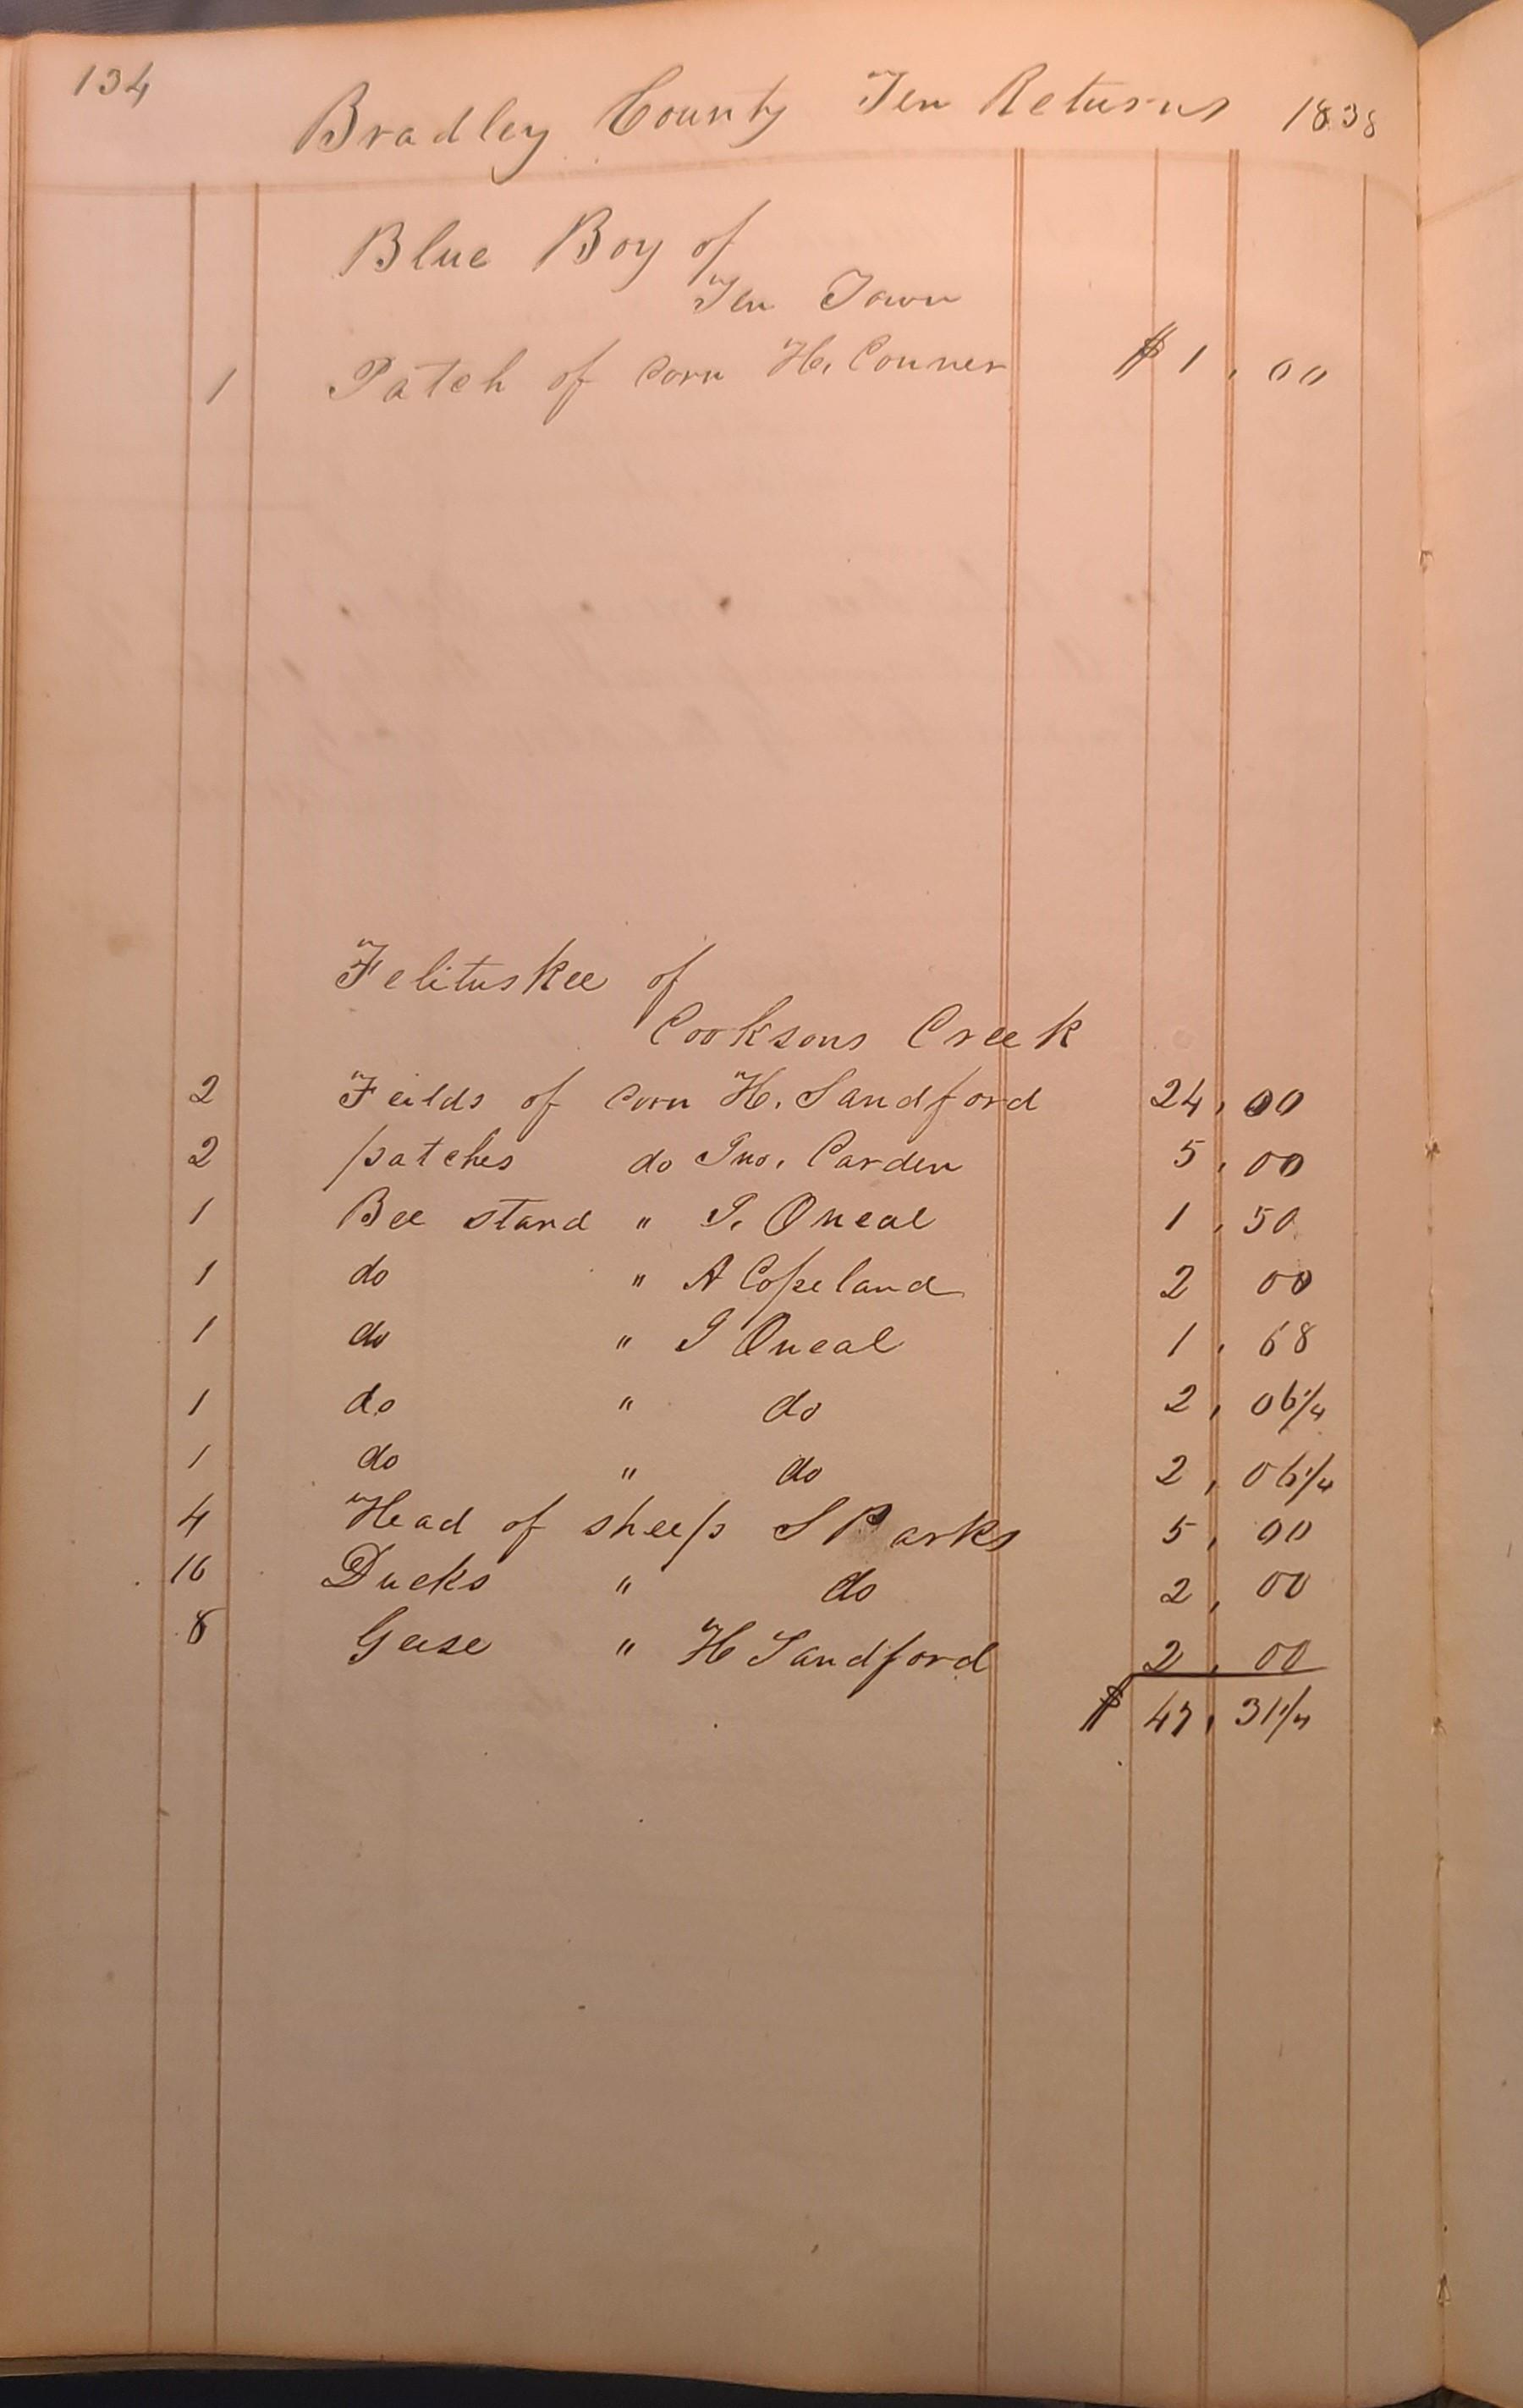 134
Bradley County Ten Returns 1838
Blue Boy of
Ten Town
1 Patch of Corn H. Conner $1,00
Felituskee of
Cooksons Creek
2 Feilds of Corn H. Sandford 24,00
2 patches do Jno. Carden 5,00
1 Bee stand " J. Oneal 1,50
1 do " A Copeland 2 00
1 do " J Oneal 1,68
1 do " do 2,06 1/4
1 do " do 2,06 1/4
4 Head of sheep S Parks 5,00
16 Ducks " do 2,00
8 Geese " H Sandford 2,00
$47,31 1/4